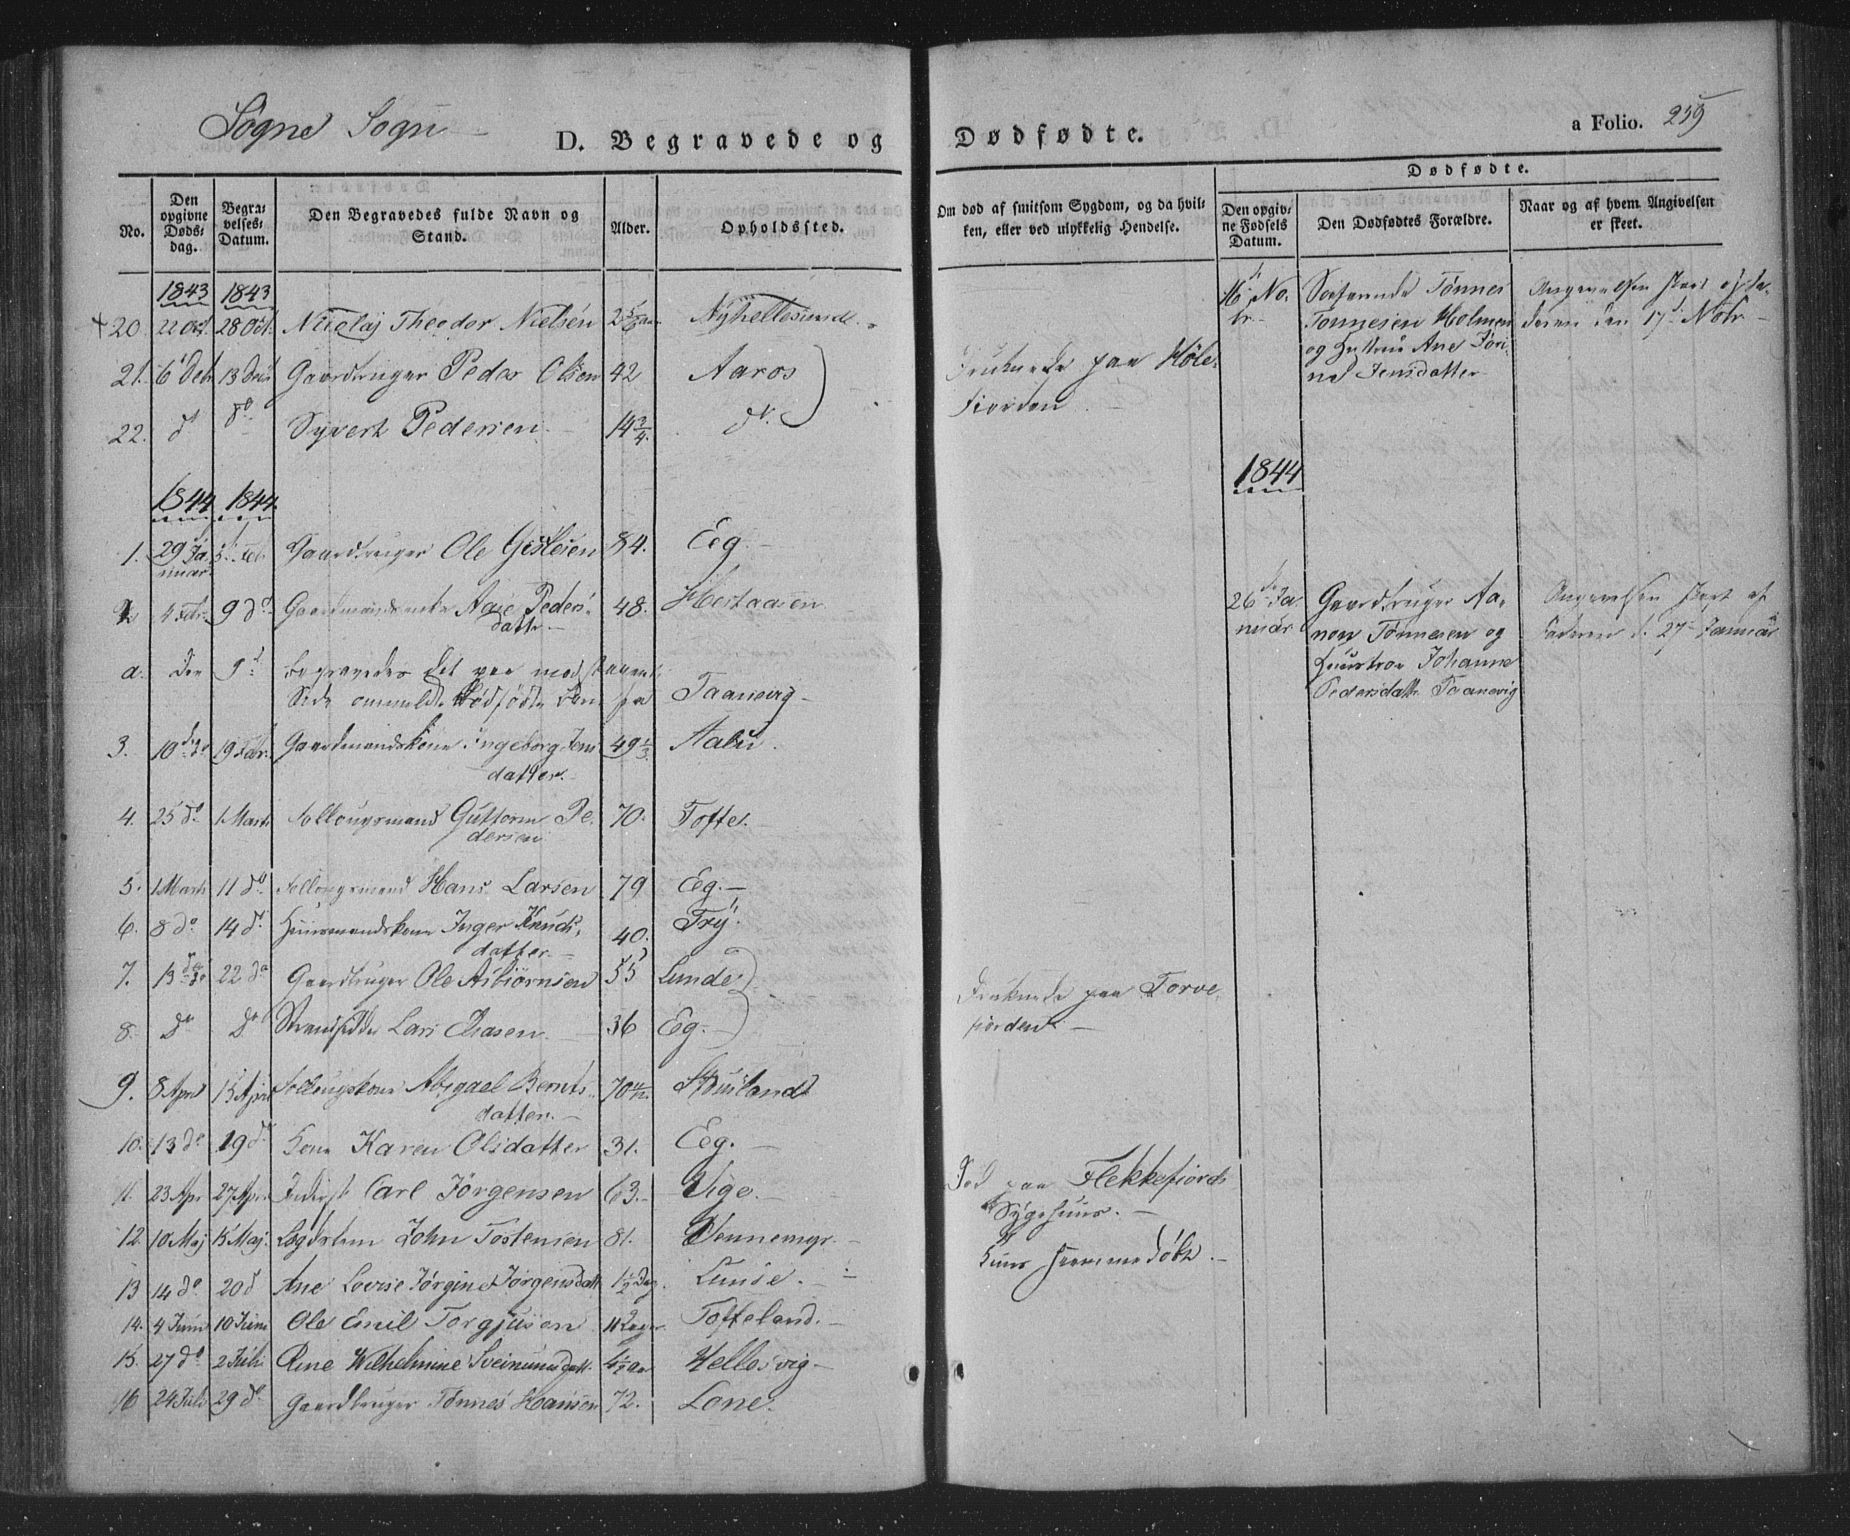 Søgne Sogn
D. Begravede og Dødfødte.
a Folio. 259
No.
Den opgivne Døds-dag.
Begra-velses-Datum.
Den Begravedes fulde Navn og Stand.
Alder.
Opholdssted.
Om død af smitsom Sygdom, og da hvil-ken, eller ved ulykkelig Hendelse.
Dødfødte.
Den opgiv-ne Fødsels Datum.
Den Dødfødtes Forældre.
Naar og af hvem Angivelsen er skeet.
1843 1843
20. 22 Oct. 28 Oct. Nicolaj Theodor Nielsen Nÿhellesund
16 No-br. Tønnes Tønnesen Holmen og Hustrue Ane Jensdatter
Angivelsen skeet af Fa-deren den 17d Nobr
21. 6 Dcbr 13 Gaardbruger Peder Olsen 42 Aaros
22. d Do Syvert Pedersen 14 3/4. do.
Druknede paa Høle-Fiorden.
1844 1844
1844
1. 29 Ja-nuar 5 Feb. Gaardbruger Ole Gislesen 84. Eeg.
2 4 Febr. 9 do Gaardmandsenke Aase Peders-datter 48. Hestaasen
26 Ja-nuar Gaardbruger Aa-non Tønnesen og Huustroe Johanne Pedersdatter Taanevig
Angivelsen skeet af Faderen d. 27 Januar
a. den 9d begravedes det paa modstaaende Side ommeldte Dødfødte Barn fra Taanevig
3. 10 do 19 Febr. Gaardmandskone Ingeborg Jens-datter. 49 1/3 Aabu.
4. 25 do 1 Marts Follougsmand Guttorm Pe-dersen 70. Tofte.
5. 1 Marts 11 do Follougsmand Hans Larsen 79 Eeg.
6. 8 do 14 do Huusmandskone Inger Knuds-datter. 40. Trÿ.
7. 13 do 22 do Gaardbruger Ole Asbiørnsen 55 Lunde
8. do do Strandsidder Lars 36 Eg.
Druknede paa Torve-fiorden.
9. 8 April 15 April Follougskone Abigael Bernts-datter. 70
10. 13 do 19 do Kone Karen Olsdatter 31. Eeg.
11. 23 Apr 27 April Carl Jørgensen 63. Vige.
Død paa Flekkefiords Sÿgehuus.
12. 10 Maj 15 Maj. Lægdslem John Tostensen 81.
13 14 do 20 d Ane Lovise Jørgine Jørgensdatt. 1 1/2 Dag. Lunde.
Kuns hiemmedøbt.
14. 4 Juni 10 Juni Ole Emil Torgjusen 11 Dager Tofteland.
15. 27 do 2 Juli Wilhelmine Sveinunsdatt. 4 1/2 Aar Hellesvig
16 24 Juli 29 do Gaardbruger Tønnes Hansen 72. Lone.